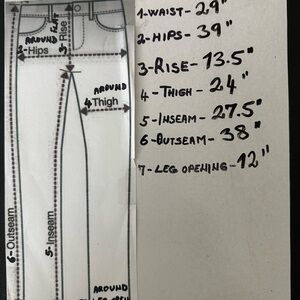 1-WAIST- 29"
2-HIPS- 39"
3-RISE- 13.5"
4-THIGH- 24"
5-INSEAM- 27.5"
6-OUTSEAM- 38"
7-LEG OPENING- 12"
AROUND
2-Hips
FRONT
3-Rise
AROUND
4 Thigh
5-Inseam
6-Outseam
AROUND